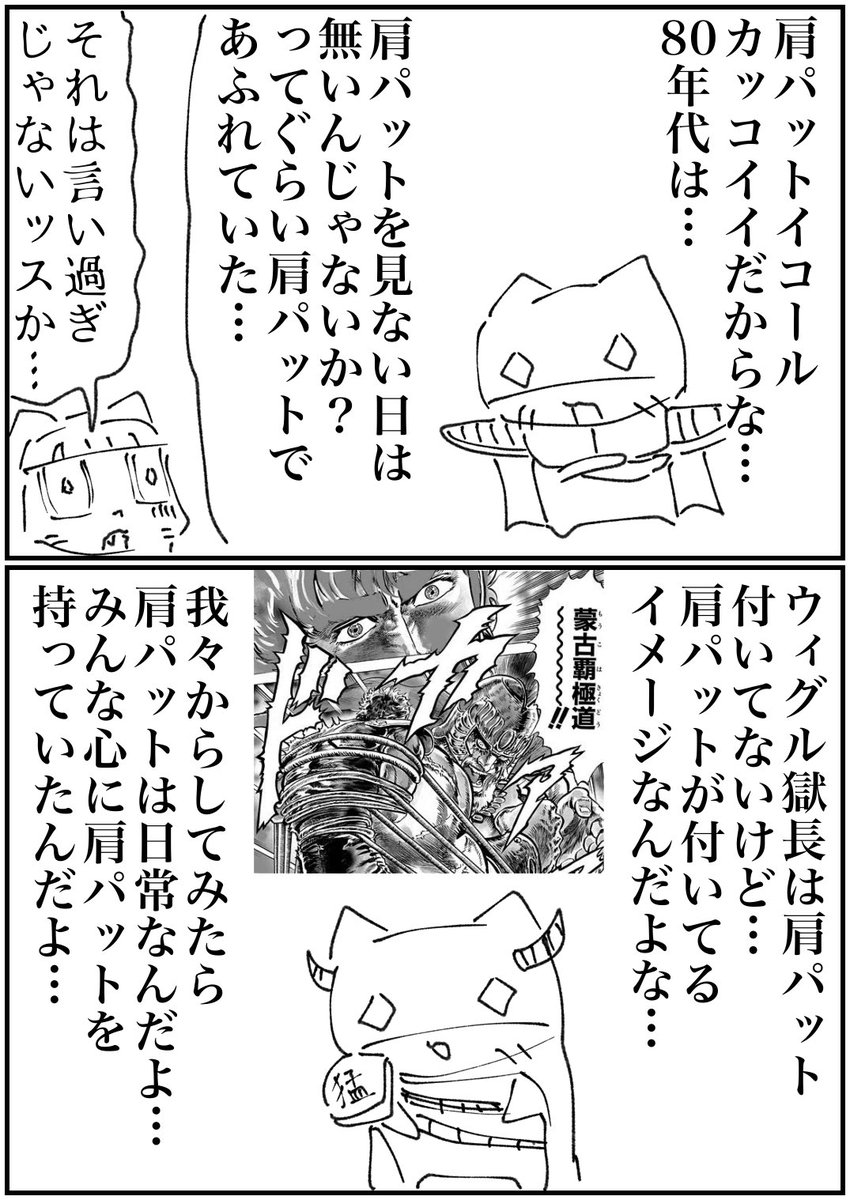 肩パットイコール
カッコイイだからな…
80年代は…
肩パットを見ない日は
無いんじゃないか?
ってぐらい肩パットで
あふれていた…
それは言い過ぎ
じゃないッスか…
ウィグル獄長は肩パット
付いてないけど…
肩パットが付いてる
イメージなんだよな…
蒙古覇極道
~~~~!!
もうこはきょくどう
ドガガ
我々からしてみたら
肩パットは日常なんだよ…
みんな心に肩パットを
持っていたんだよ…
猛